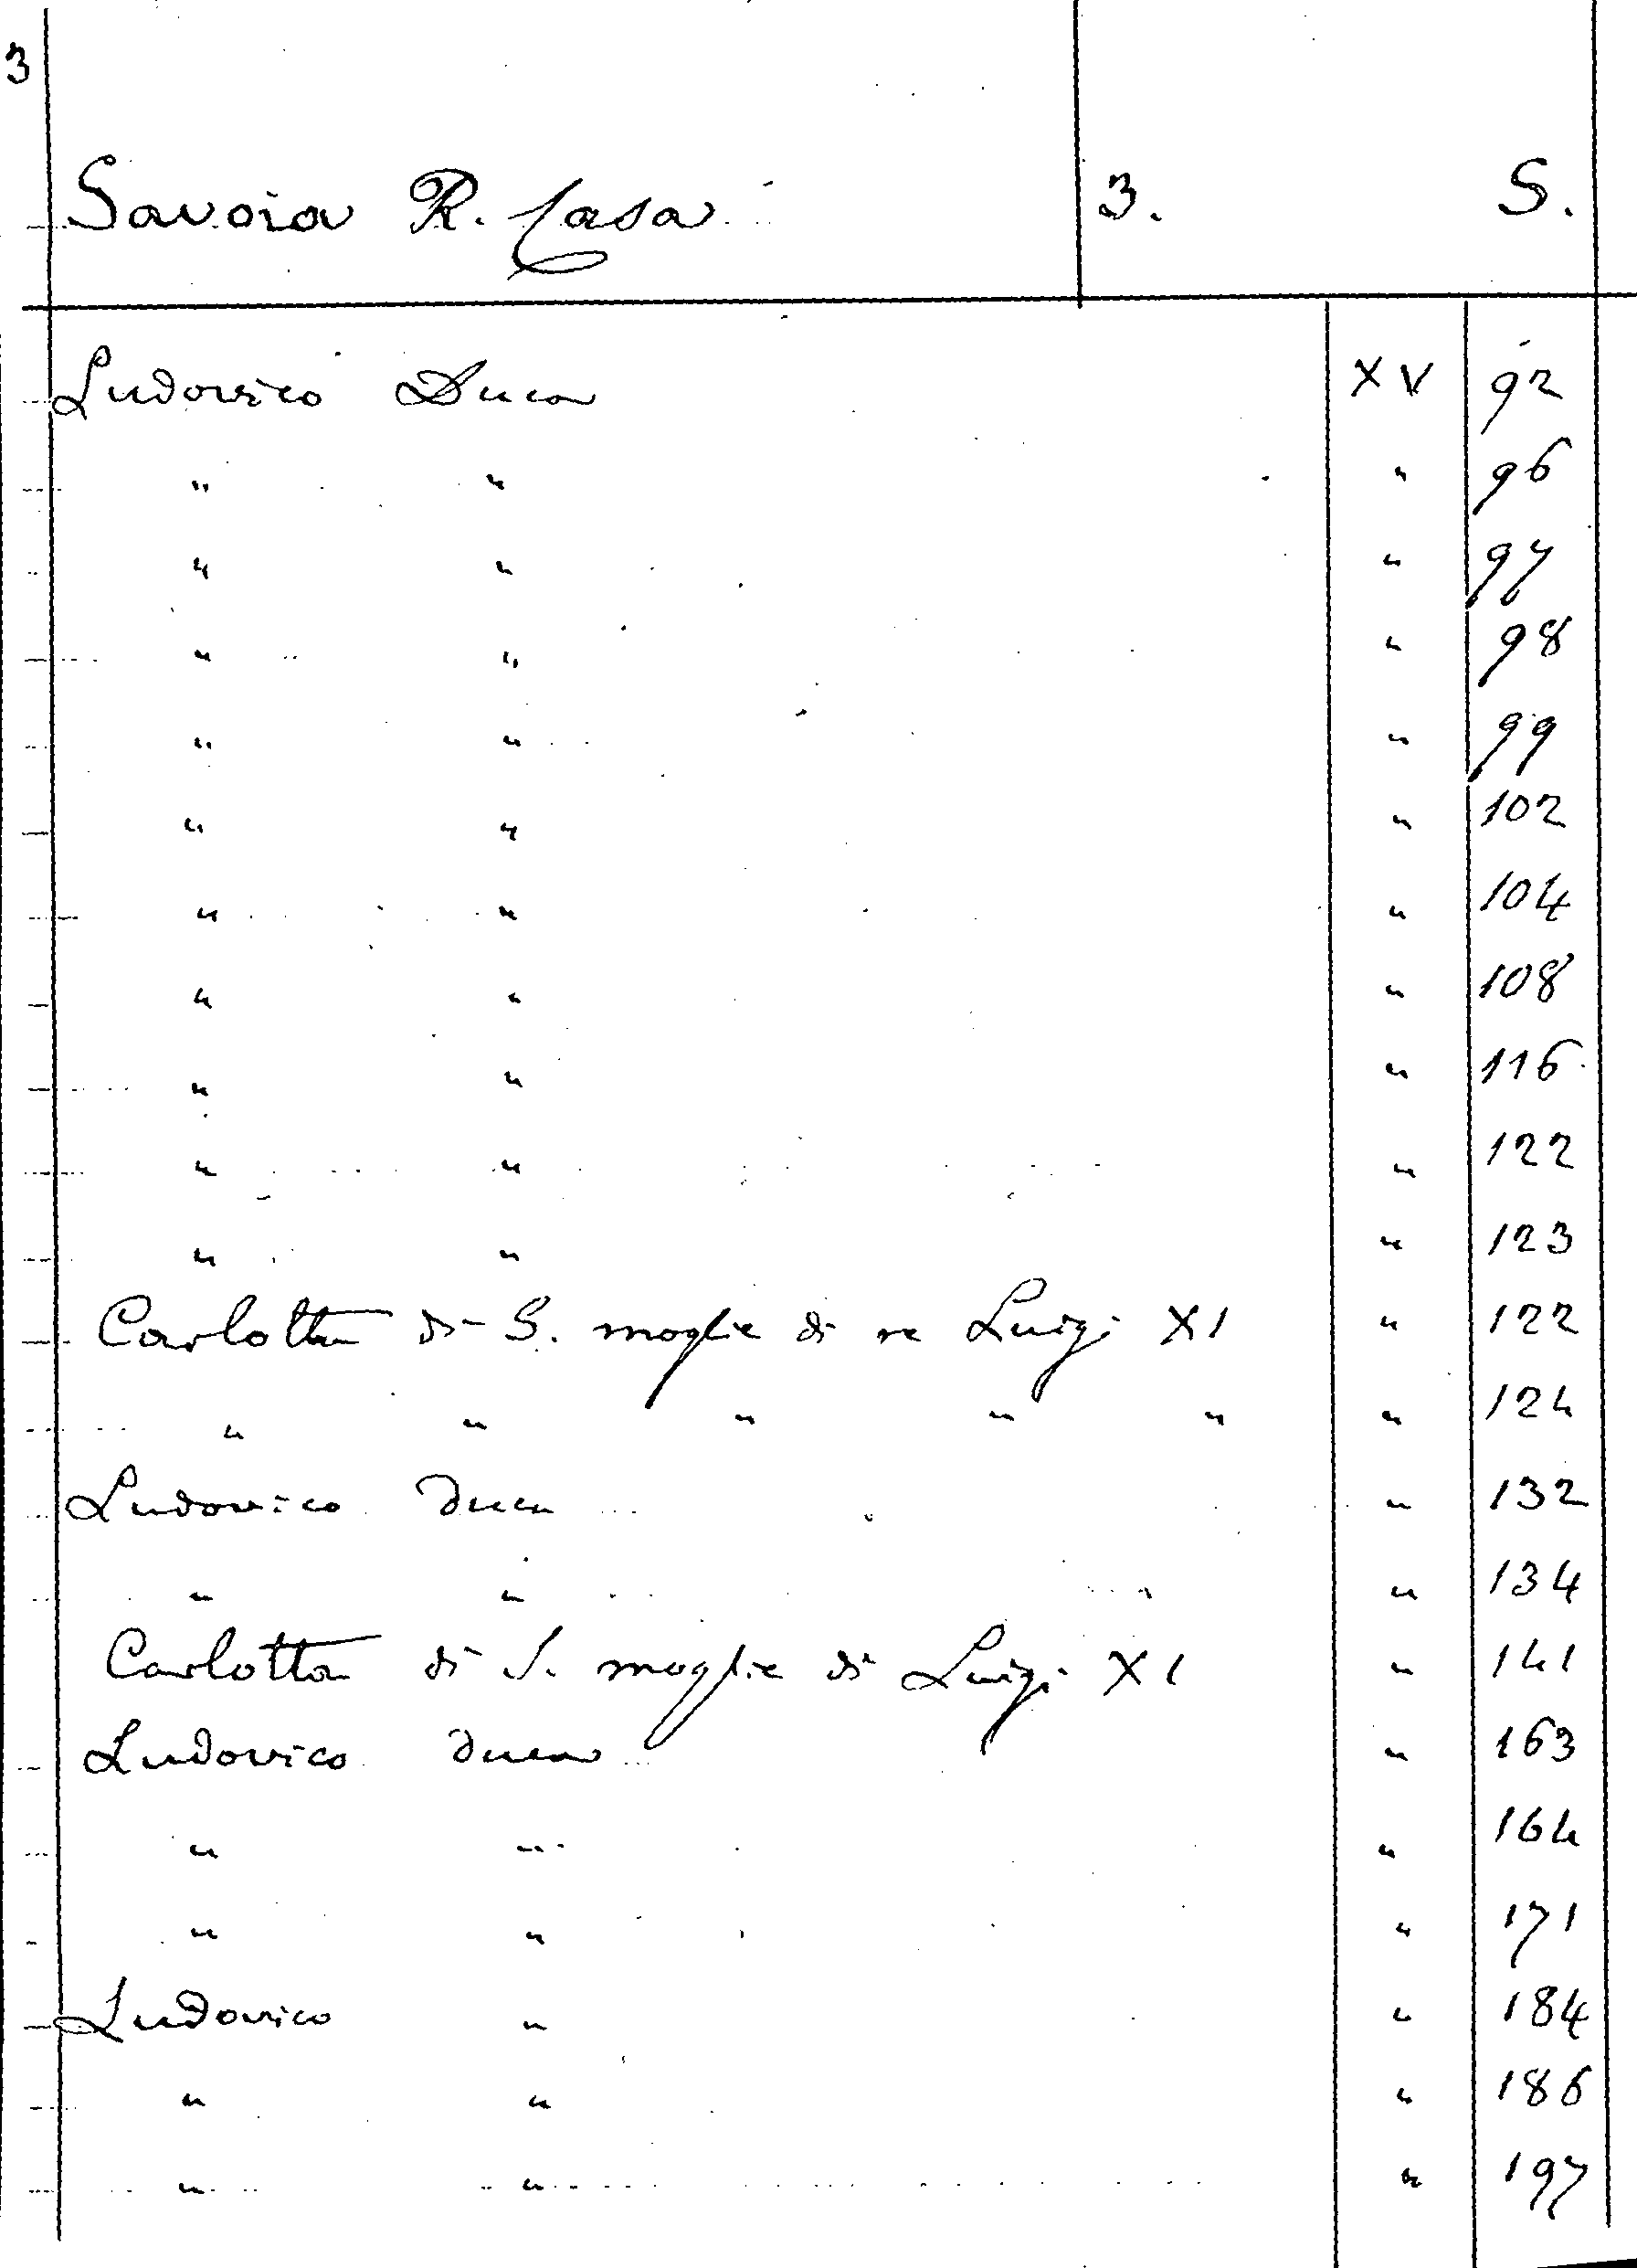 3
Savoia R. Casa 3. S.
Ludovico Duca XV 92
" " " 96
" " " 97
" " " 98
" " " 99
" " " 102
" " " 104
" " " 108
" " " 116
" " " 122
" " " 123
Carlotta di S. moglie di re Luigi XI " 122
" " " " " " 124
Ludovico Duca " 132
" " " 134
Carlotta di S. moglie di Luigi XI " 141
Ludovico duca " 163
" " " 164
" " " 171
Ludovico " " 184
" " " 186
" " " 197